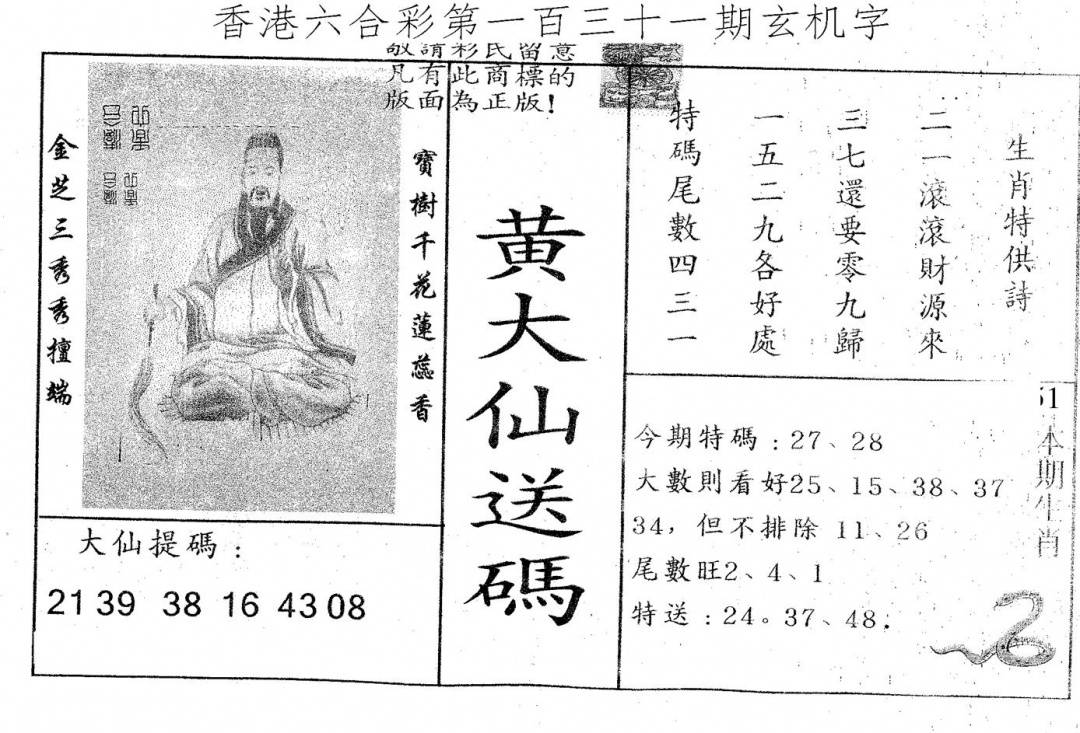 香港六合彩第一百三十一期玄机字
敬請彩民留意
凡有此商標的
版面為正版!
金芝三秀秀擅端
寶樹千花蓮蕊香
大仙提碼:
21 39 38 16 43 08
黄大仙送碼
生肖特供詩
二一滾滾財源來
三七還要零九歸
一五二九各好處
特碼尾數四三一
今期特碼:27、28
大數則看好25、15、38、37
34,但不排除 11、26
尾數旺2、4、1
特送:24。37、48.
本期生肖